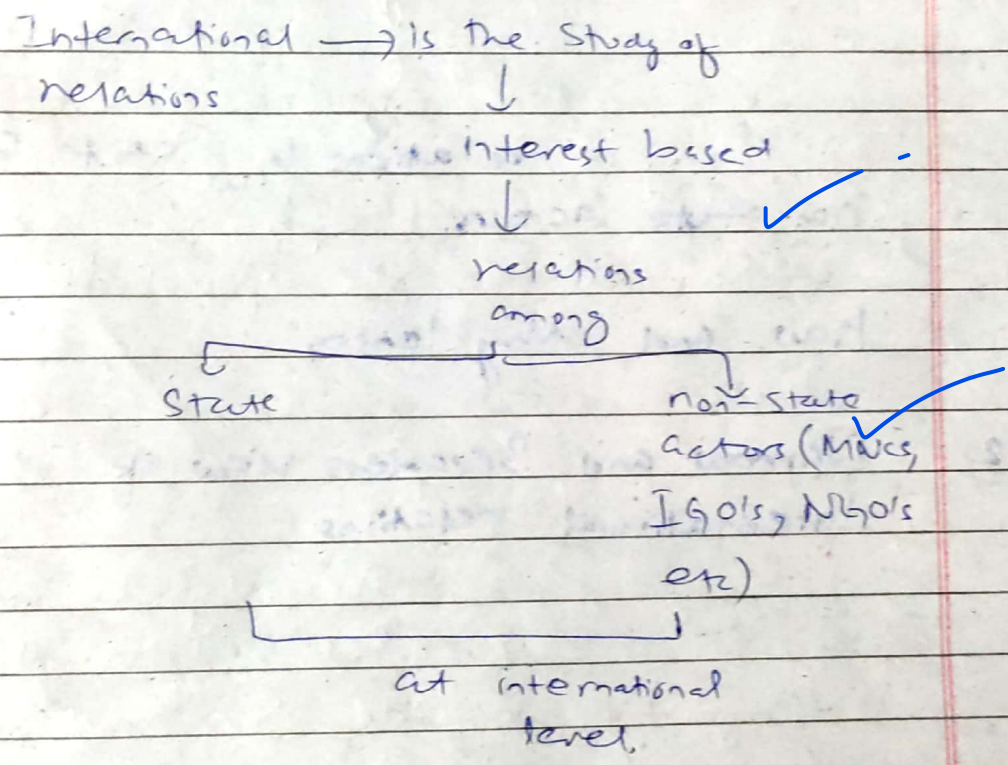 International → is the study of
relations
↓
interest based
↓
relations
among
State non-state
actors (MNCs,
IGO's, NGO's
etc)
at international
level.